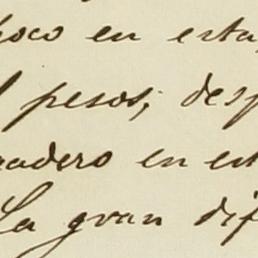 poco en esta
pesos; desp
radero en est
La gran dif